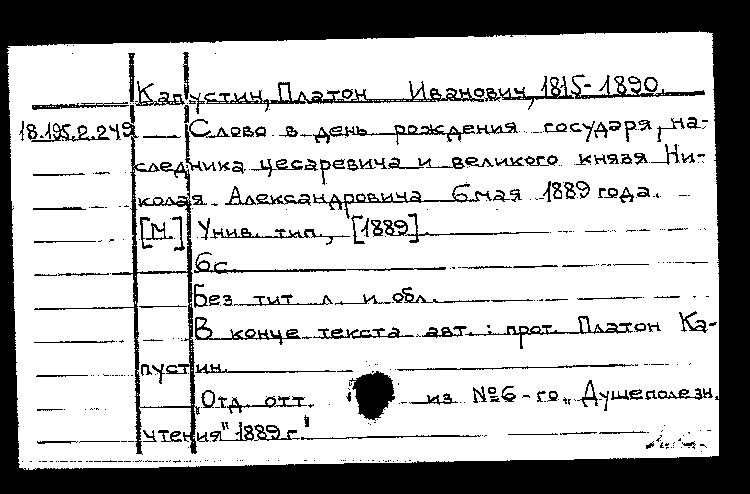 Капустин, Платон Иванович, 1815-1890.
18.195.2.249 Слово в день рождения государя, на-
следника цесаревича и великого князя Ни-
колая Александровича 6 мая 1889 года.
[М.] Унив. тип., [1889].
6с.
Без тит л. и обл.
В конце текста авт.: прот. Платон Ка-
пустин.
"Отд. отт. из №6-го „Душеполезн.
чтения" 1889 г."